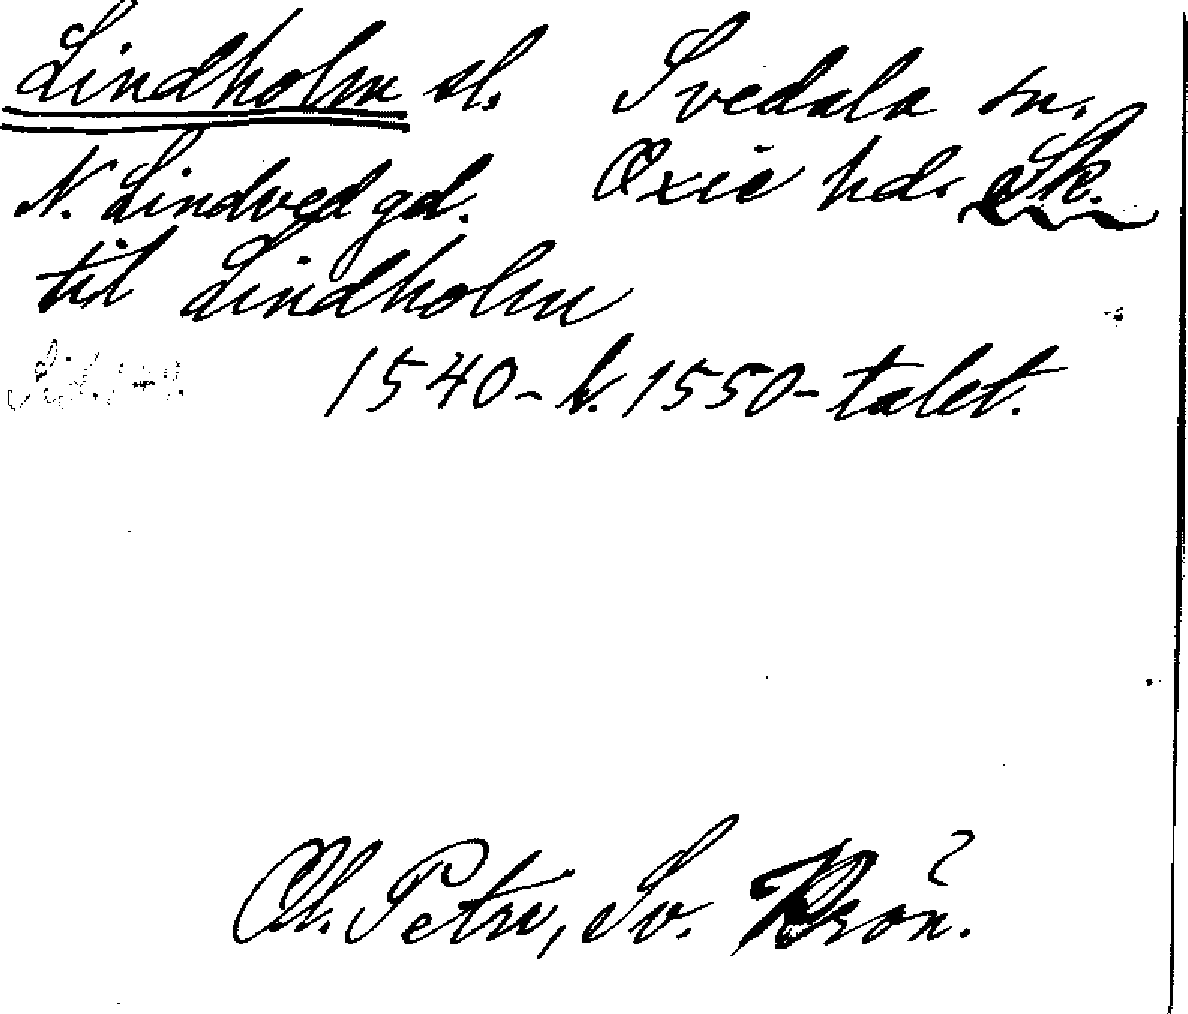 Lindholm sl. Svedala sn.
N. Lindved gd. Oxie hd. Sk.
til Lindholm
1540- h. 1550-talet.
Ol. Petri, Sv. Krön.